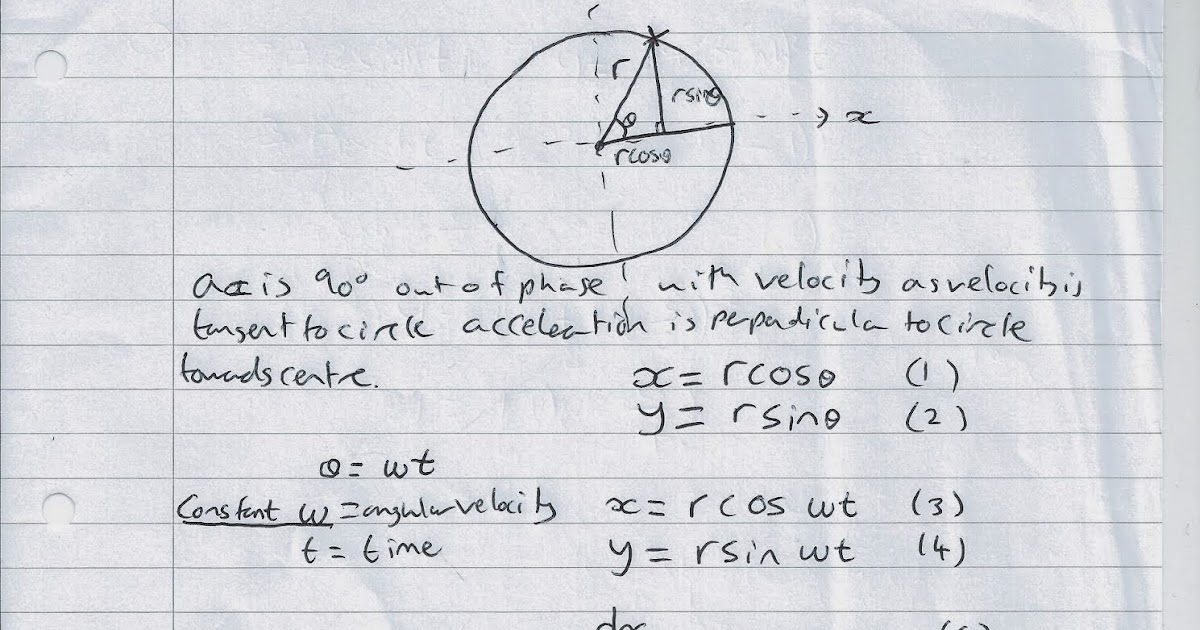 r
rsinθ
θ
x
rcosθ
a is 90° out of phase with velocity as velocity is
tangent to circle acceleration is perpadicula to circle
towards centre.
x = rcosθ (1)
y = rsinθ (2)
θ = wt
Constant w = angular velocity x = r cos wt (3)
t = time y = rsin wt (4)